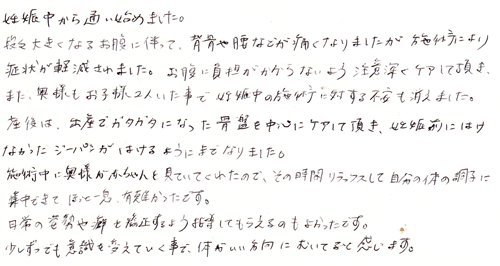 妊娠中から通い始めました。
段々大きくなるお腹に伴って、背骨や腰などが痛くなりましたが施術により
症状が軽減されました。お腹に負担がかからないよう注意深くケアして頂き、
また、奥様もお子様2人いた事で妊娠中の施術に対する不安も消えました。
産後は、出産でガタガタになった骨盤を中心にケアして頂き、妊娠前にはけ
なかったジーパンがはけるようにまでなりました。
施術中に奥様が赤ちゃんを見ていてくれたので、その時間リラックスして自分の体の調子に
集中できてほっと一息、有難かったです。
日常の姿勢や癖を矯正するよう指導してもらえるのもよかったです。
少しずつでも意識を変えていく事で、体がいい方向にむいてると感じます。